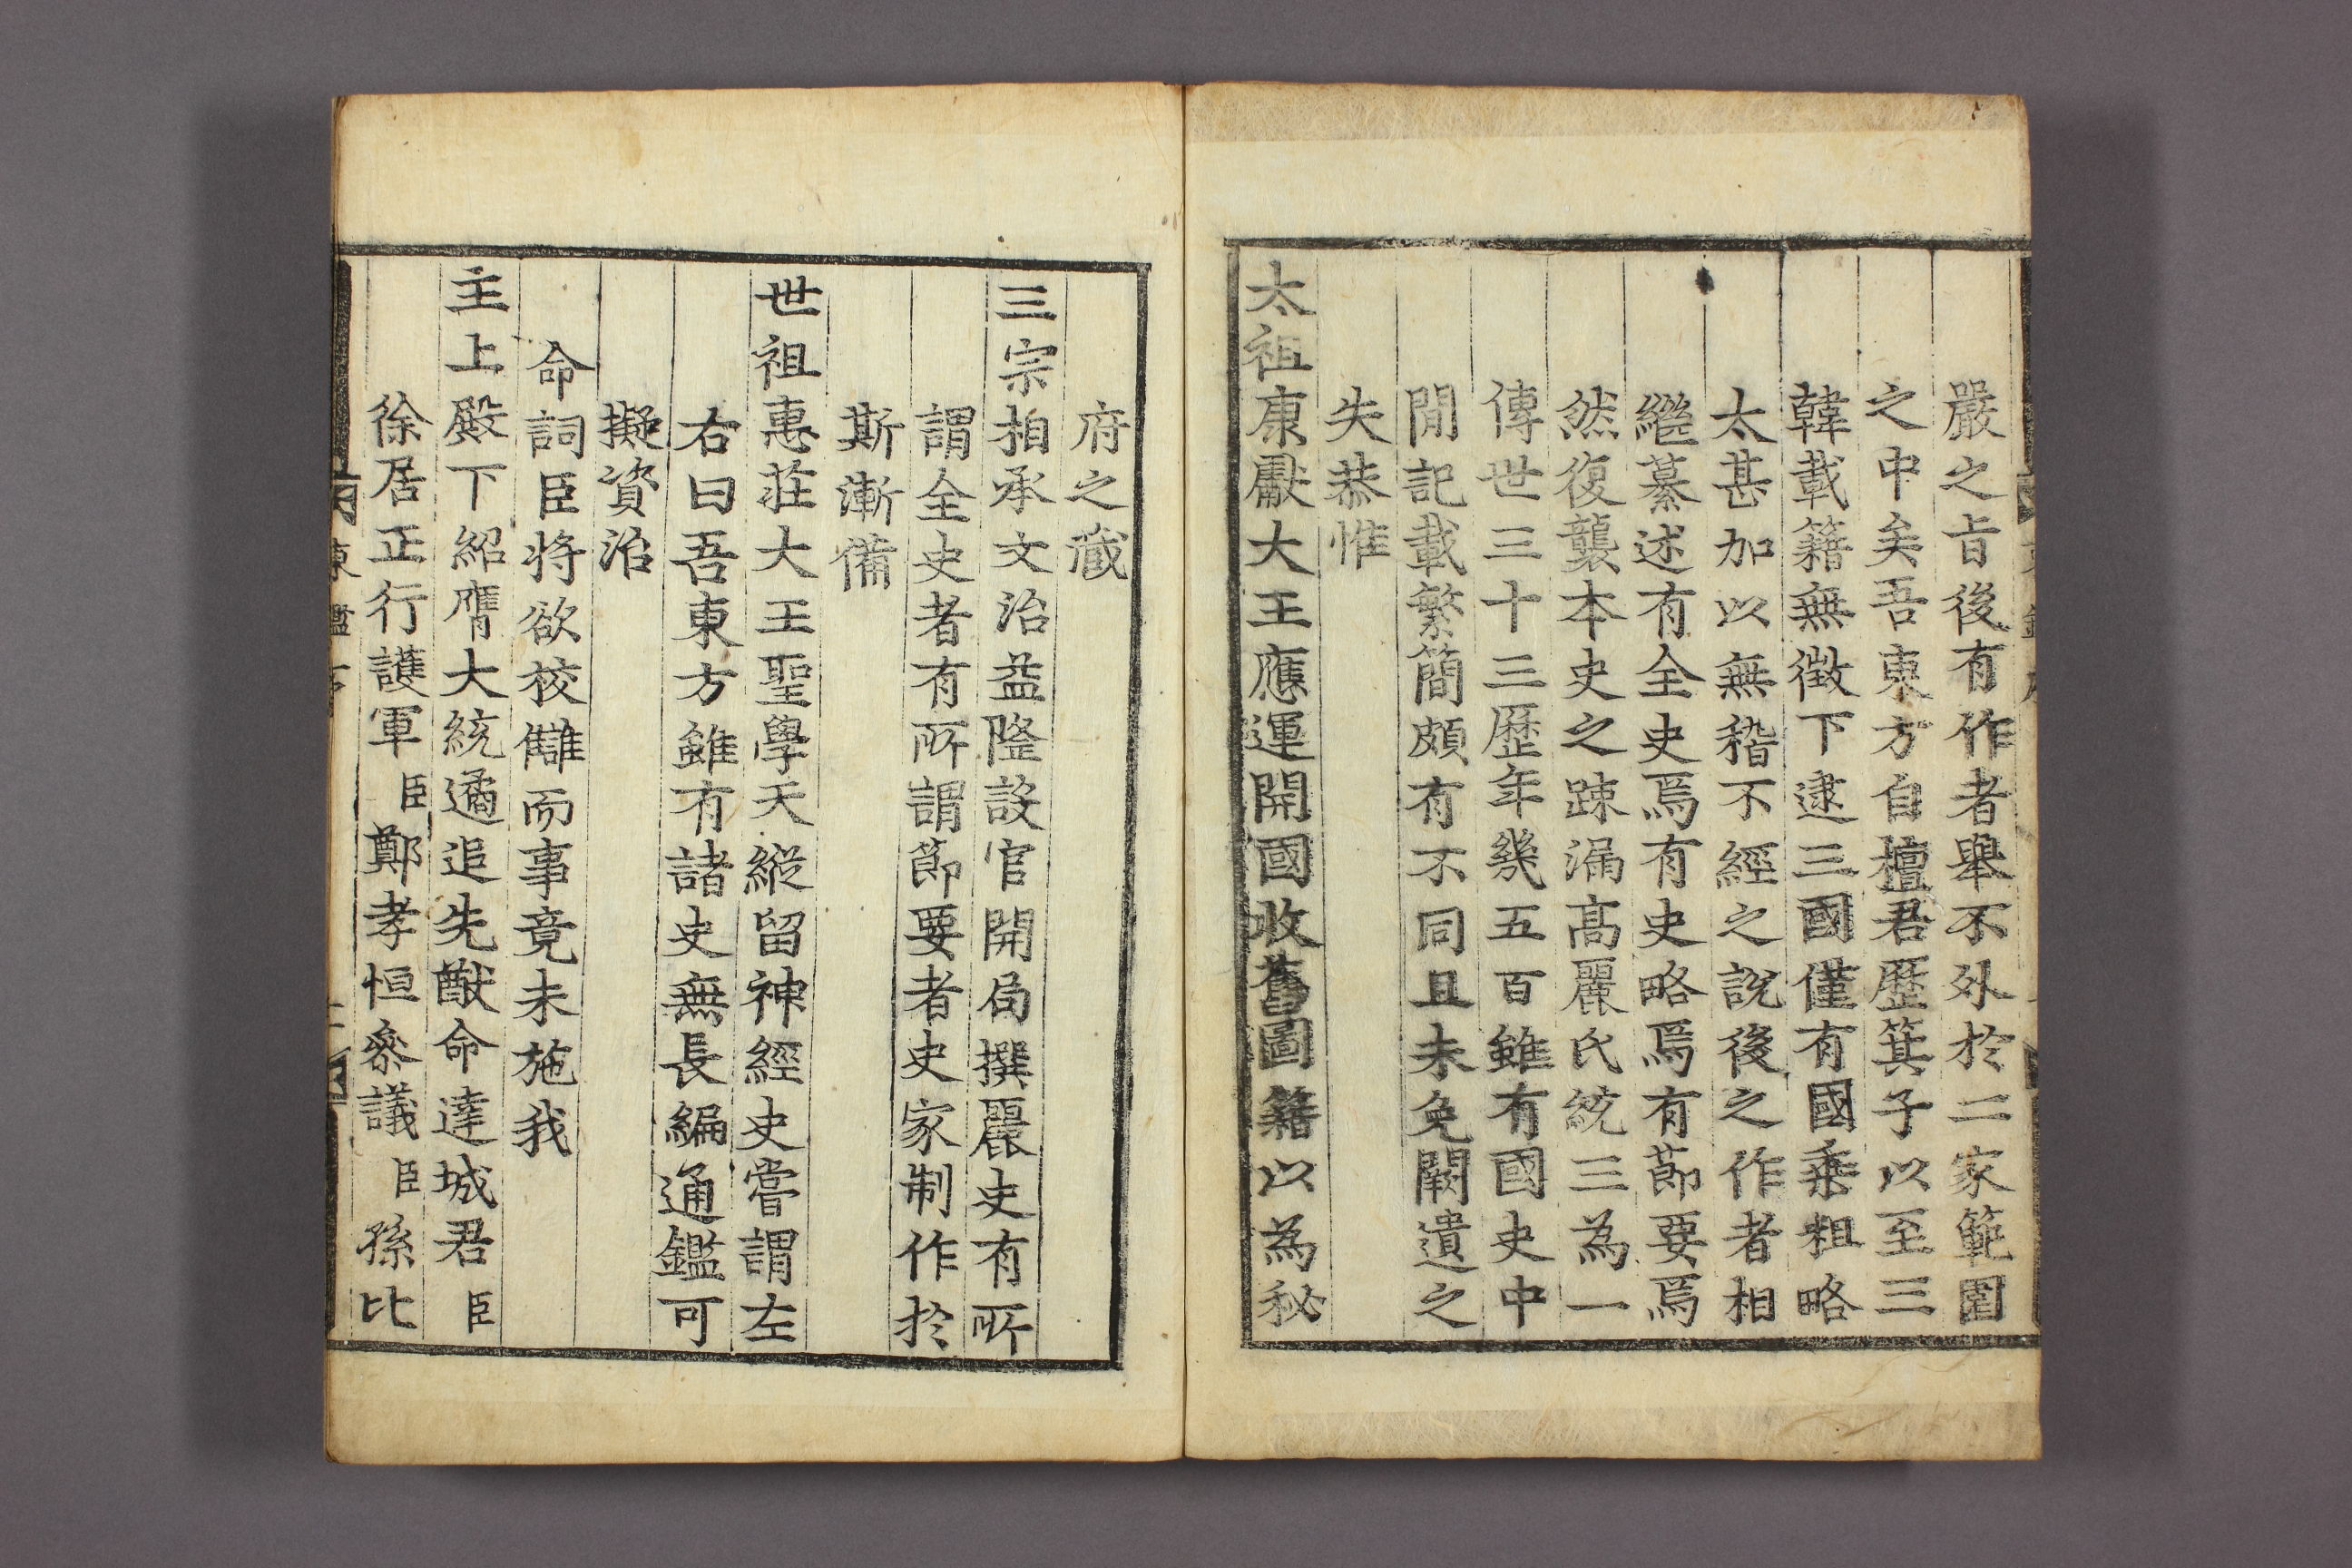 嚴之㫖後有作者舉不外於二家範圍
之中矣吾東方自檀君歷箕子以至三
韓載籍無徵下逮三國僅有國乗粗略
太甚加以無稽不經之說後之作者相
繼纂述有全史焉有史略焉有節要焉
然復襲本史之踈漏髙麗氏統三為一
傳世三十三歷年幾五百雖有國史中
間記載繁簡頗有不同且未免闕遺之
失恭惟
太祖康獻大王應運開國收舊圖籍以為秘
府之藏
三宗相承文治益隆設官開局撰麗史有所
謂全史者有所謂節要者史家制作於
斯漸備
世祖惠莊大王聖學天縱留神經史嘗謂左
右曰吾東方雖有諸史無長編通鑑可
擬資治
命詞臣将欲校讎而事竟未施我
主上殿下紹膺大統遹追先猷命達城君臣
徐居正行護軍臣鄭孝恒叅議臣孫比